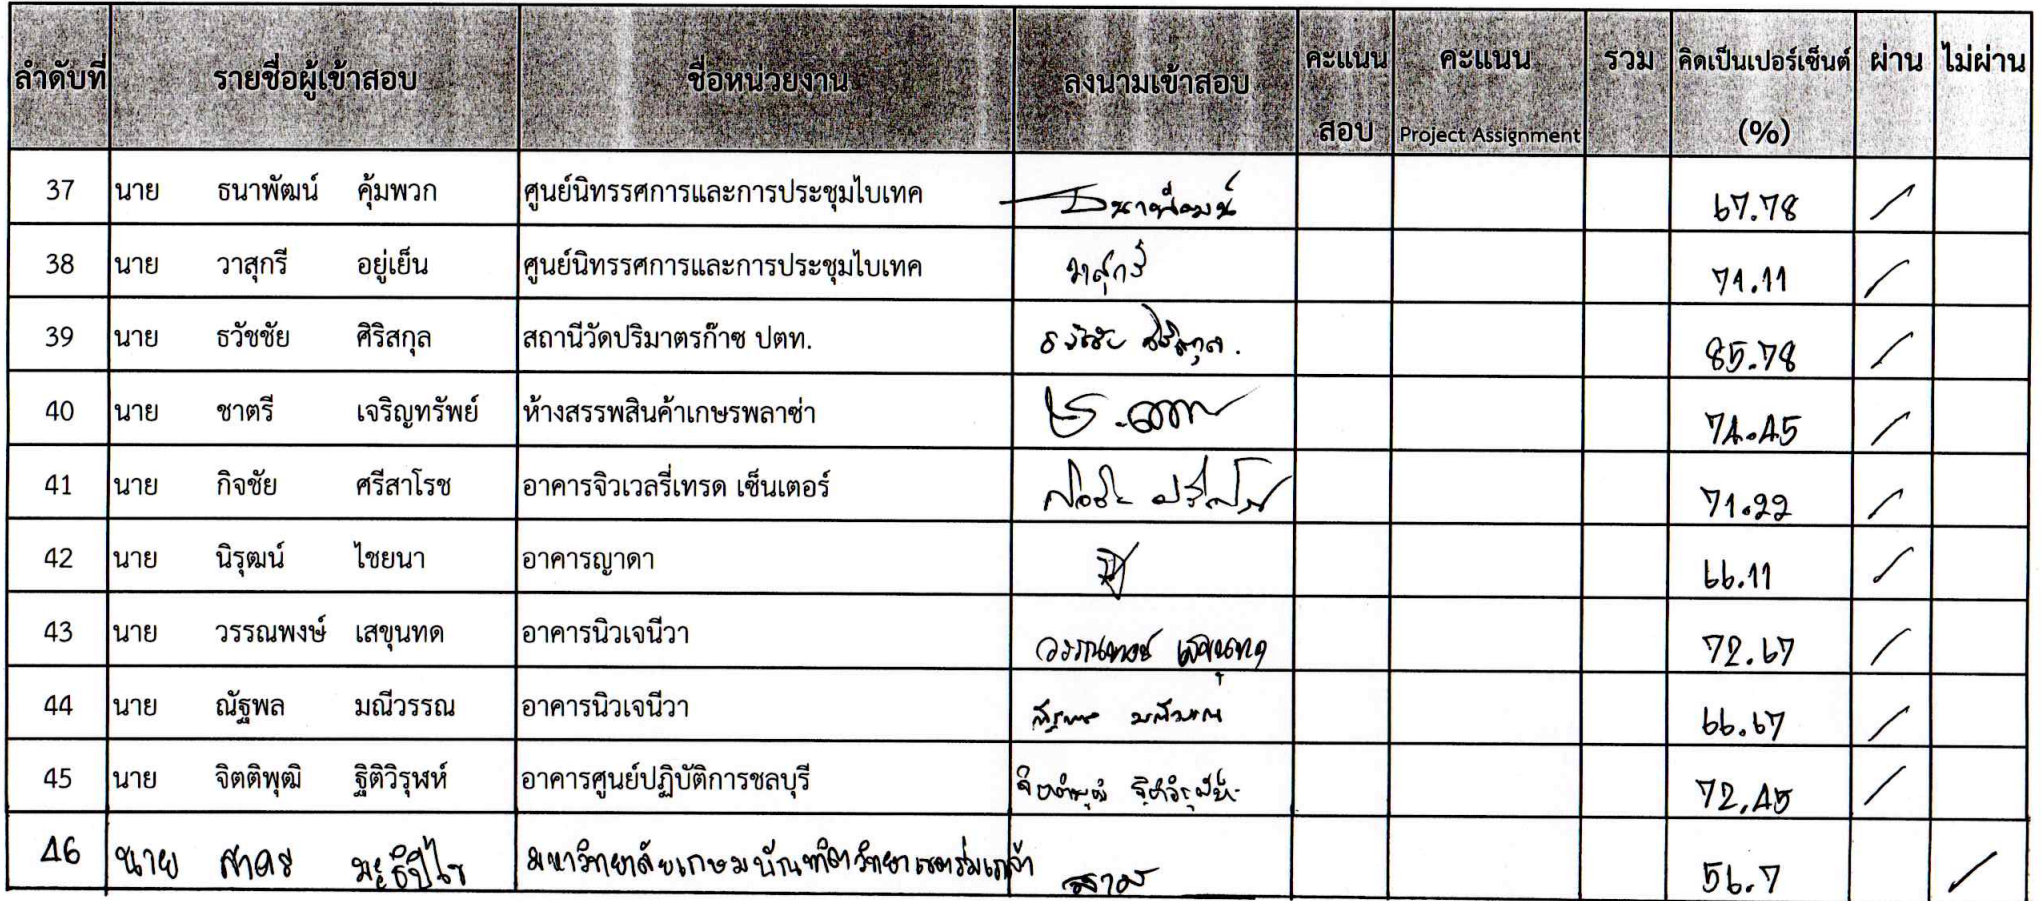 ลำดับที่ รายชื่อผู้เข้าสอบ ชื่อหน่วยงาน ลงนามเข้าสอบ คะแนนสอบ คะแนน Project Assignment รวม คิดเป็นเปอร์เซ็นต์ (%) ผ่าน ไม่ผ่าน
37 นาย ธนาพัฒน์ คุ้มพวก ศูนย์นิทรรศการและการประชุมไบเทค ธนาพัฒน์ 67.78 /
38 นาย วาสุกรี อยู่เย็น ศูนย์นิทรรศการและการประชุมไบเทค วาสุกรี 71.11 /
39 นาย ธวัชชัย ศิริสกุล สถานีวัดปริมาตรก๊าซ ปตท. ธวัชชัย ศิริสกุล. 85.78 /
40 นาย ชาตรี เจริญทรัพย์ ห้างสรรพสินค้าเกษรพลาซ่า 74.45 /
41 นาย กิจชัย ศรีสาโรช อาคารจิวเวลรี่เทรด เซ็นเตอร์ 71.22 /
42 นาย นิรุฒน์ ไชยนา อาคารญาดา 66.11 /
43 นาย วรรณพงษ์ เสขุนทด อาคารนิวเจนีวา วรรณพงษ์ เสขุนทด 72.67 /
44 นาย ณัฐพล มณีวรรณ อาคารนิวเจนีวา ณัฐพล มณีวรรณ 66.67 /
45 นาย จิตติพุฒิ ฐิติวิรุฬห์ อาคารศูนย์ปฏิบัติการชลบุรี จิตติพุฒิ ฐิติวิรุฬห์ 72.45 /
46 นาย สาคร มหาวิทยาลัยเกษมบัณฑิตวิทยาเขตร่มเกล้า 56.7 /